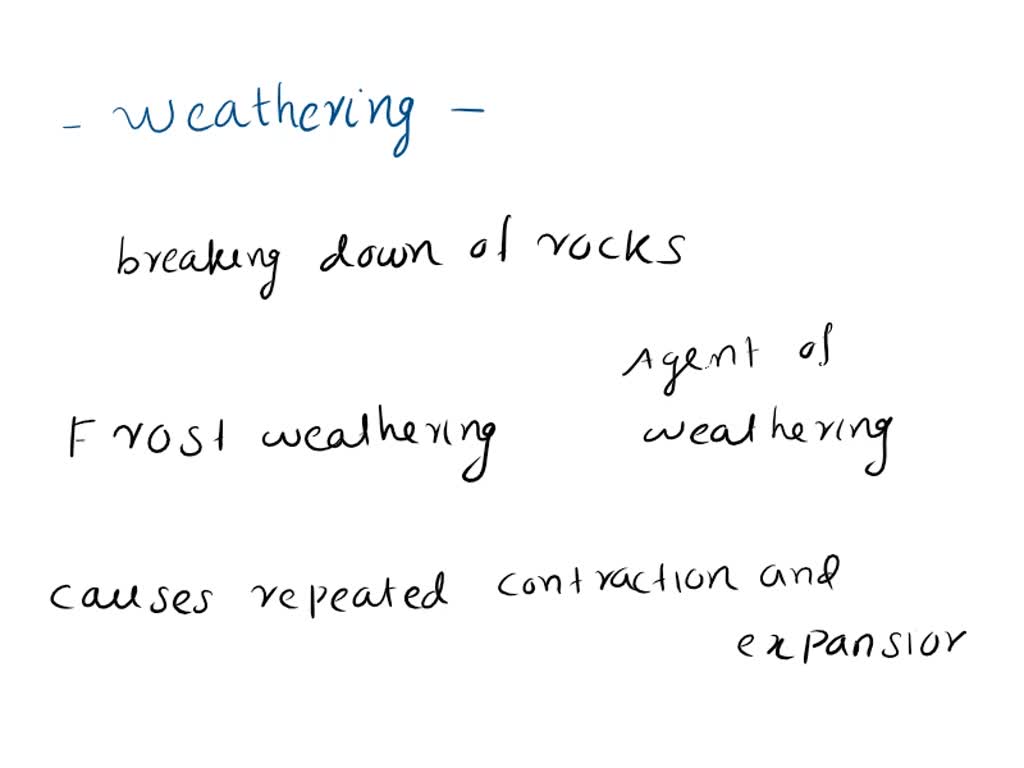 - Weathering -
breaking down of rocks
Agent of
Frost weathering weathering
causes repeated contraction and
expansior